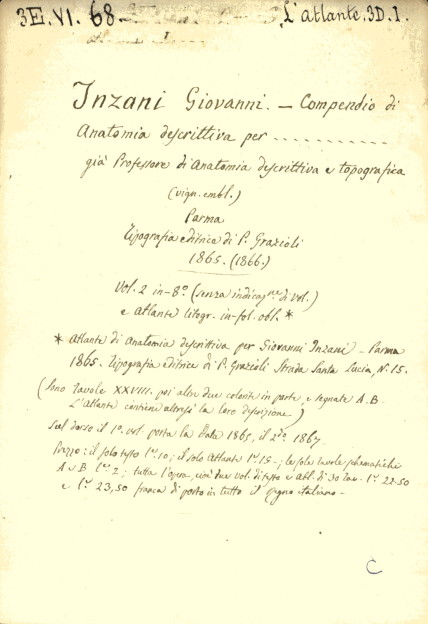 3E.VI.68. L'atlante.3D.1.
I
Inzani Giovanni. — Compendio di
Anatomia descrittiva per ..........
già Professore di Anatomia descrittiva e topografica
(vign. embl.)
Parma
Tipografia editrice di P. Grazioli
1865. (1866.)
Vol. 2 in-8º (senza indicazne di vol.)
e Atlante litogr. in-fol. obl. *
* Atlante di Anatomia descrittiva per Giovanni Inzani — Parma
1865. Tipografia editrice di P. Grazioli Strada Santa Lucia, N. 15.
(Sono Tavole XXVIII. poi altre due colorite in parte, e segnate A.B.
L'Atlante contiene altresì la loro )
Sul dorso il 1º. vol. porta la Data 1865, il 2do. 1867.
Prezzo: il solo testo Lre. 10; il solo Atlante Lre. 15 -; le sole tavole schematiche
A e B Lre. 2; tutta l'opera, cioè due vol. di testo e Atl. di 30 tav. Lre. 22-50
e Lre. 23,50 franca di porto in tutto il regno italiano -
C